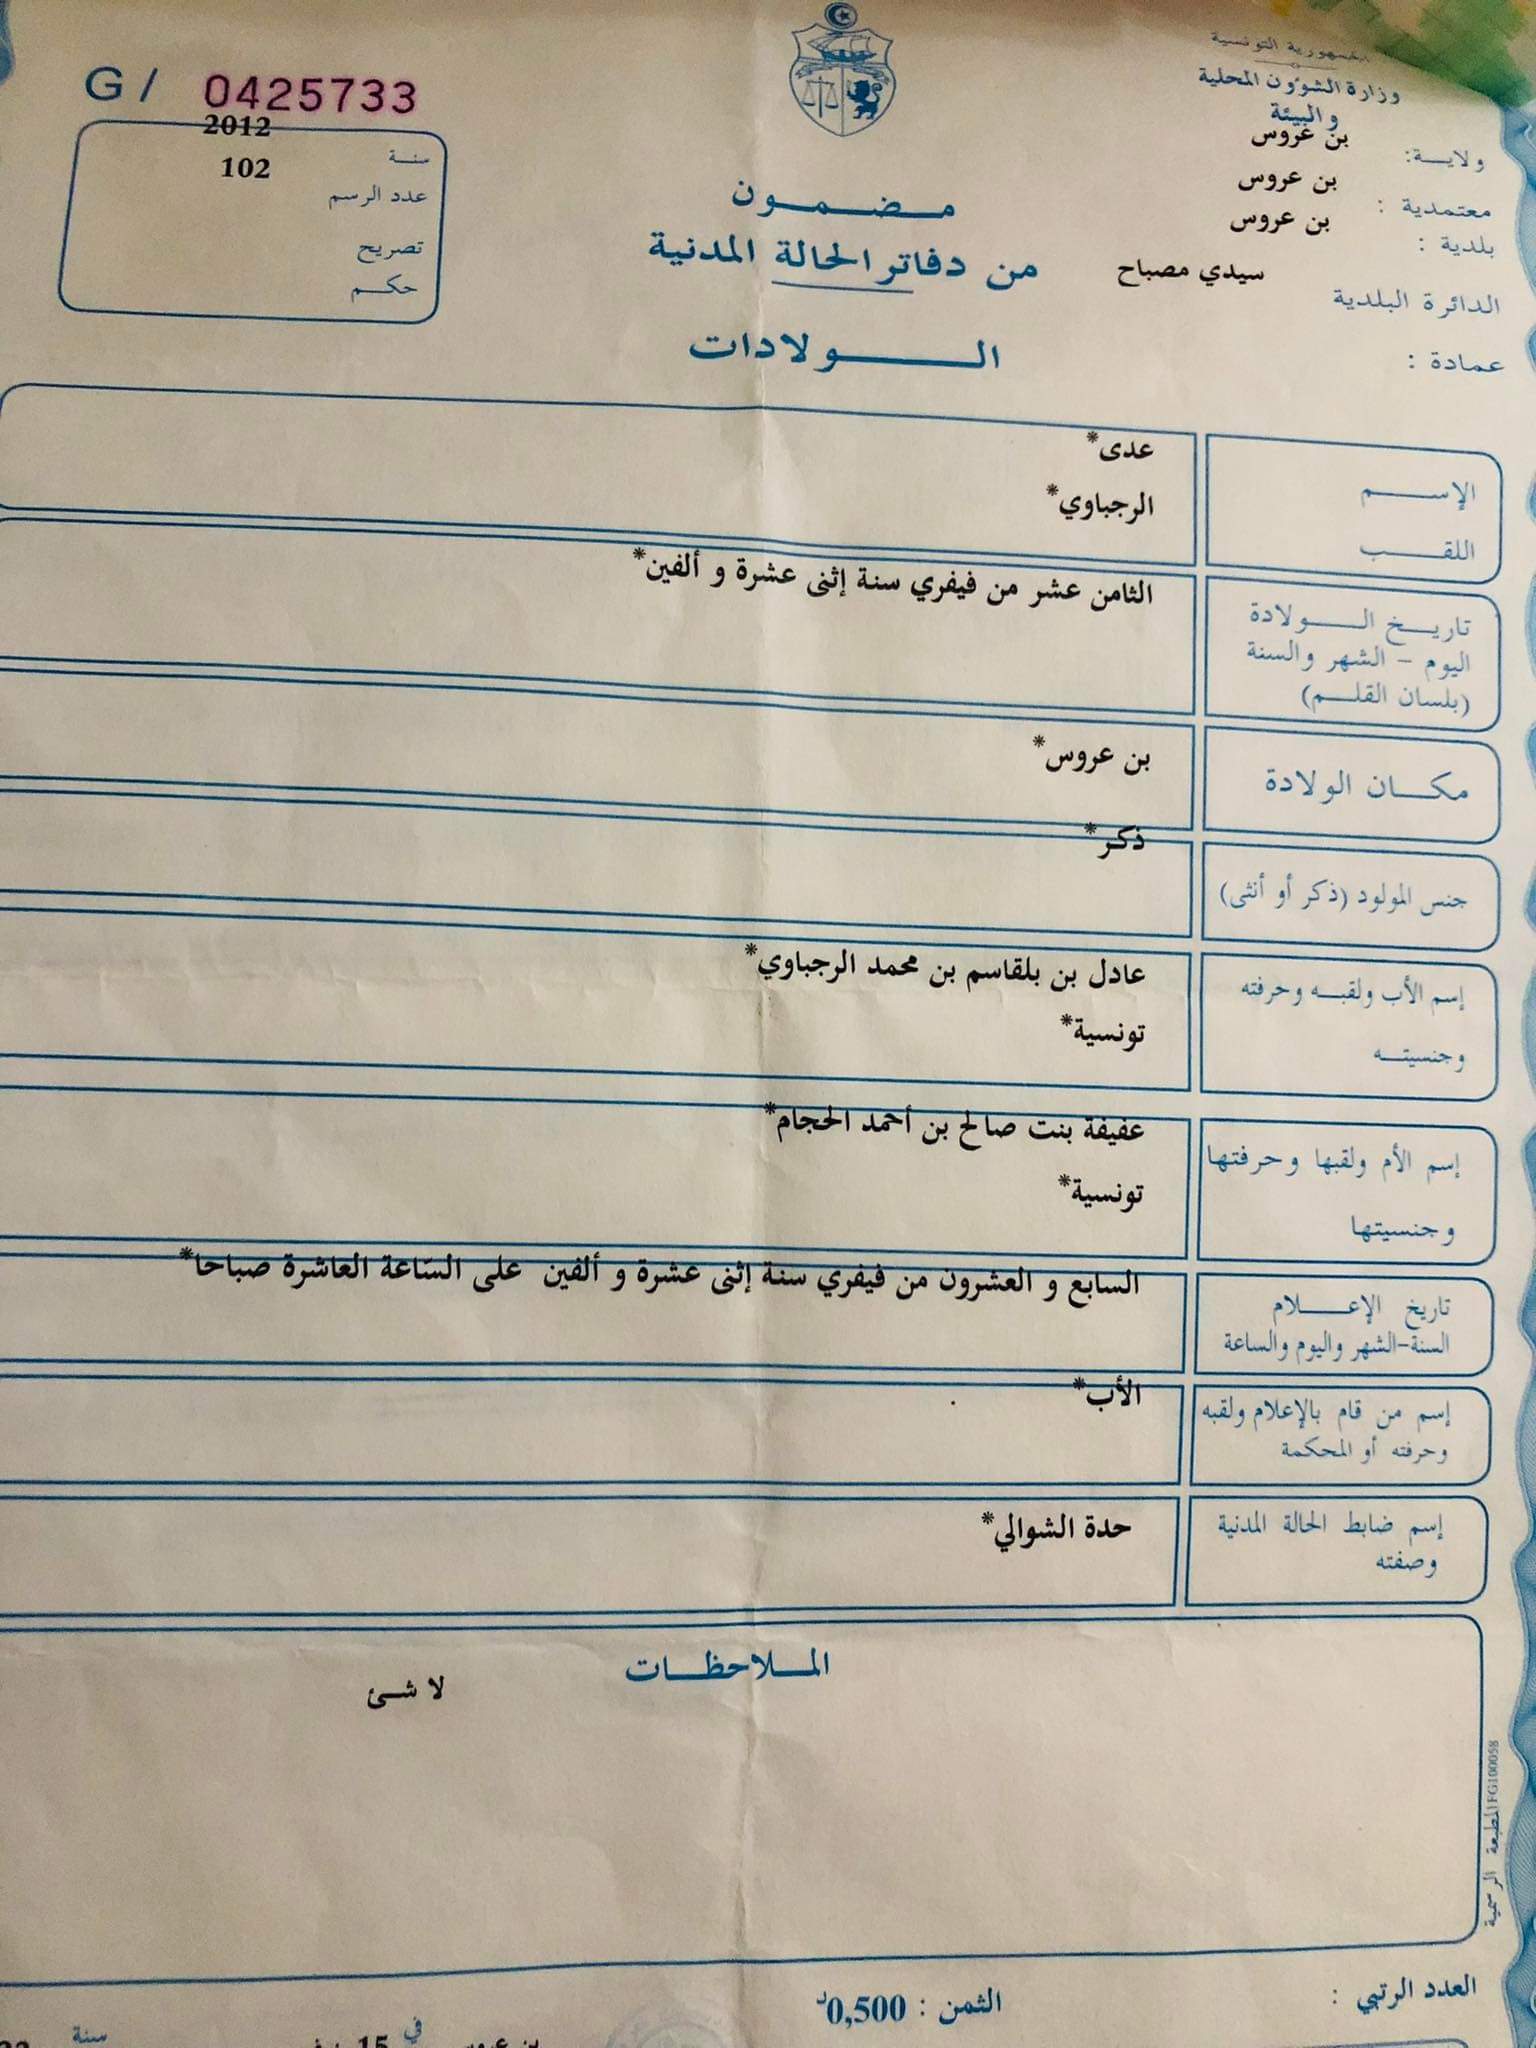 الجمهورية التونسية
وزارة الشؤون المحلية
و البيئة
ولايـــة: بن عروس
معتمدية : بن عروس
بلدية : بن عروس
الدائرة البلدية سيدي مصباح
عمادة :
G / 0425733
سنـة 2012
عدد الرسم 102
تصريح
حكـــم
مـــضـــمـــون
من دفاتر الحالة المدنية
الـــــولادات
الإســـــم عدى*
اللقـــب الرجباوي*
تاريـــخ الـــــولادة الثامن عشر من فيفري سنة إثنى عشرة و ألفين*
اليوم - الشهر والسنة
(بلسان القلـــم)
مكـــان الولادة بن عروس*
جنس المولود (ذكر أو أنثى) ذكر*
إسم الأب ولقبـــه وحرفته عادل بن بلقاسم بن محمد الرجباوي*
وجنسيتـــه تونسية*
إسم الأم ولقبها وحرفتها عفيفة بنت صالح بن أحمد الحجام*
وجنسيتها تونسية*
تاريخ الإعـــــلام السابع و العشرون من فيفري سنة إثنى عشرة و ألفين على السّاعة العاشرة صباحا*
السنة-الشهر واليوم والساعة
إسم من قام بالإعلام ولقبه الأب*
وحرفته أو المحكمة
إسم ضابط الحالة المدنية حدة الشوالي*
وصفته
المـــلاحظـــات
لا شئ
المطبعة الرسمية FG100058
العدد الرتبي :
الثمن : 0,500د
بن عروس في 15
سنة